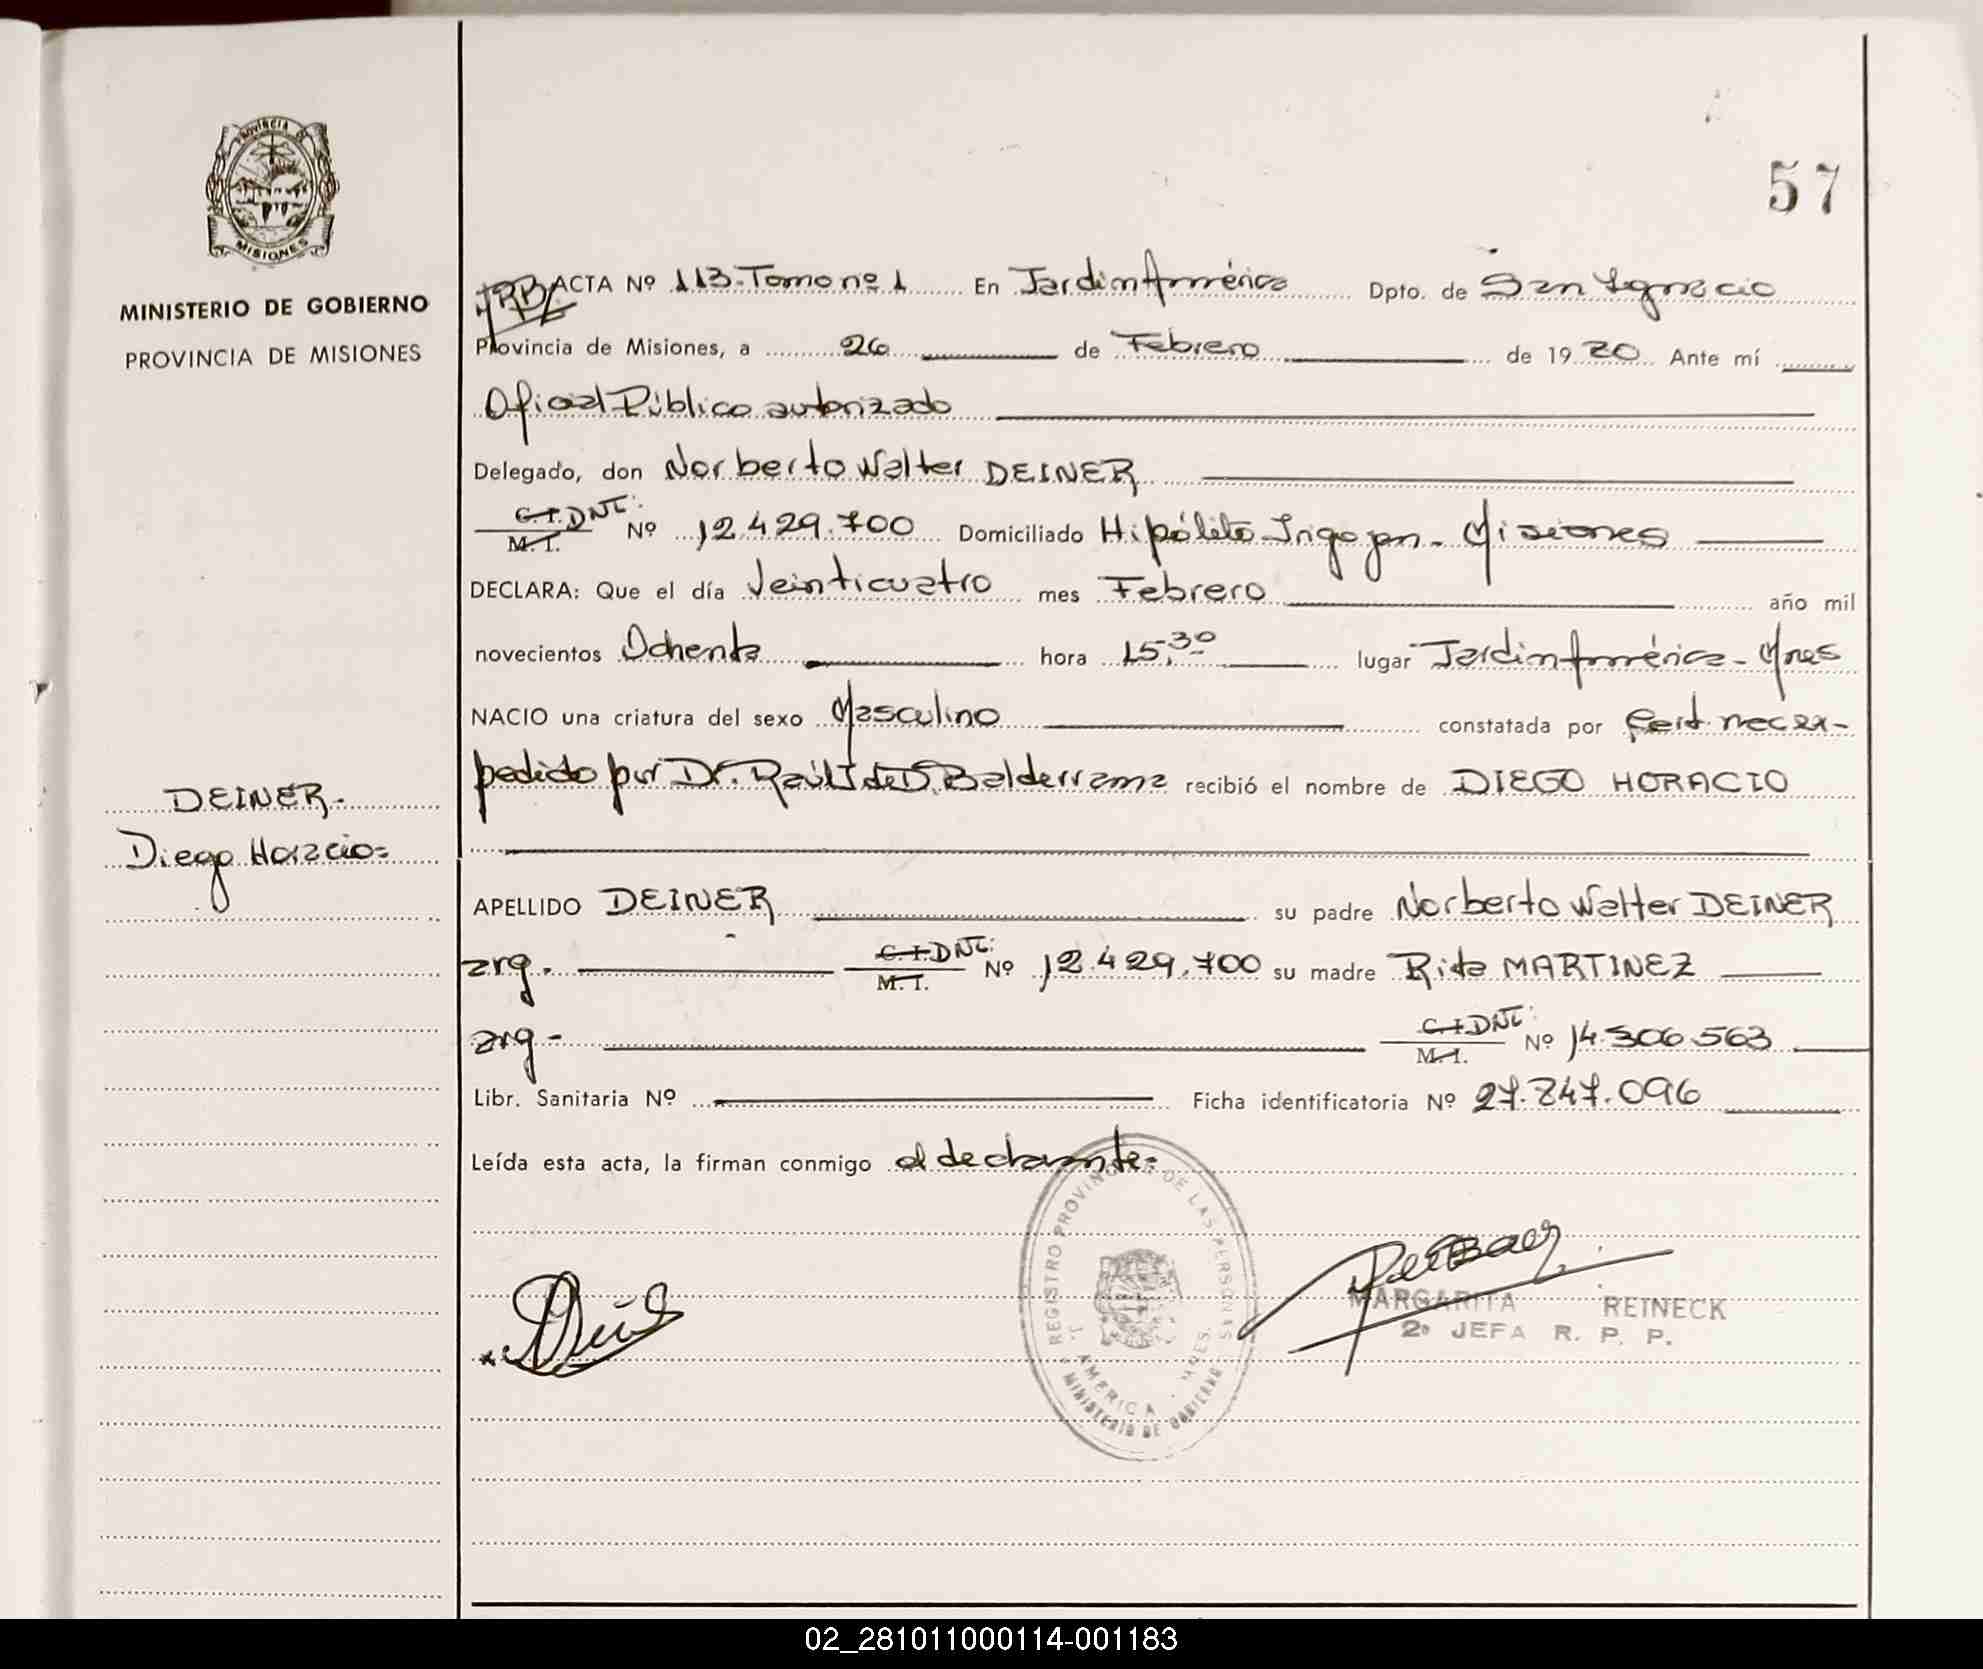 PROVINCIA DE
MISIONES
MINISTERIO DE GOBIERNO
PROVINCIA DE MISIONES
57
ACTA Nº 113-Tomo nº 1 En Jardin América Dpto. de San Ignacio
Provincia de Misiones, a 26 de Febrero de 1980 Ante mí
Oficial Público autorizado
Delegado, don Norberto Walter DEINER
C.I. DNI: M.I. Nº 12.429.700 Domiciliado Hipólito Irigoyen - Misiones
DECLARA: Que el día Veinticuatro mes Febrero año mil
novecientos Ochenta hora 15,30 lugar Jardin América - Mnes
NACIO una criatura del sexo Masculino constatada por Cert. nac ex-
pedido por Dr. Raúl I. de D. Balderrama recibió el nombre de DIEGO HORACIO
DEINER.
Diego Horacio=
APELLIDO DEINER su padre Norberto Walter DEINER
arg. C.I. DNI: M.I. Nº 12.429.700 su madre Rita MARTINEZ
arg- C.I. DNI: M.I. Nº 14.306.563
Libr. Sanitaria Nº Ficha identificatoria Nº 27.847.096
Leída esta acta, la firman conmigo el declarante=
REGISTRO PROVINCIAL DE LAS PERSONAS
J. AMERICA - MNES.
MINISTERIO DE GOBIERNO
MARGARITA REINECK
2º JEFA R. P. P.
02_281011000114-001183